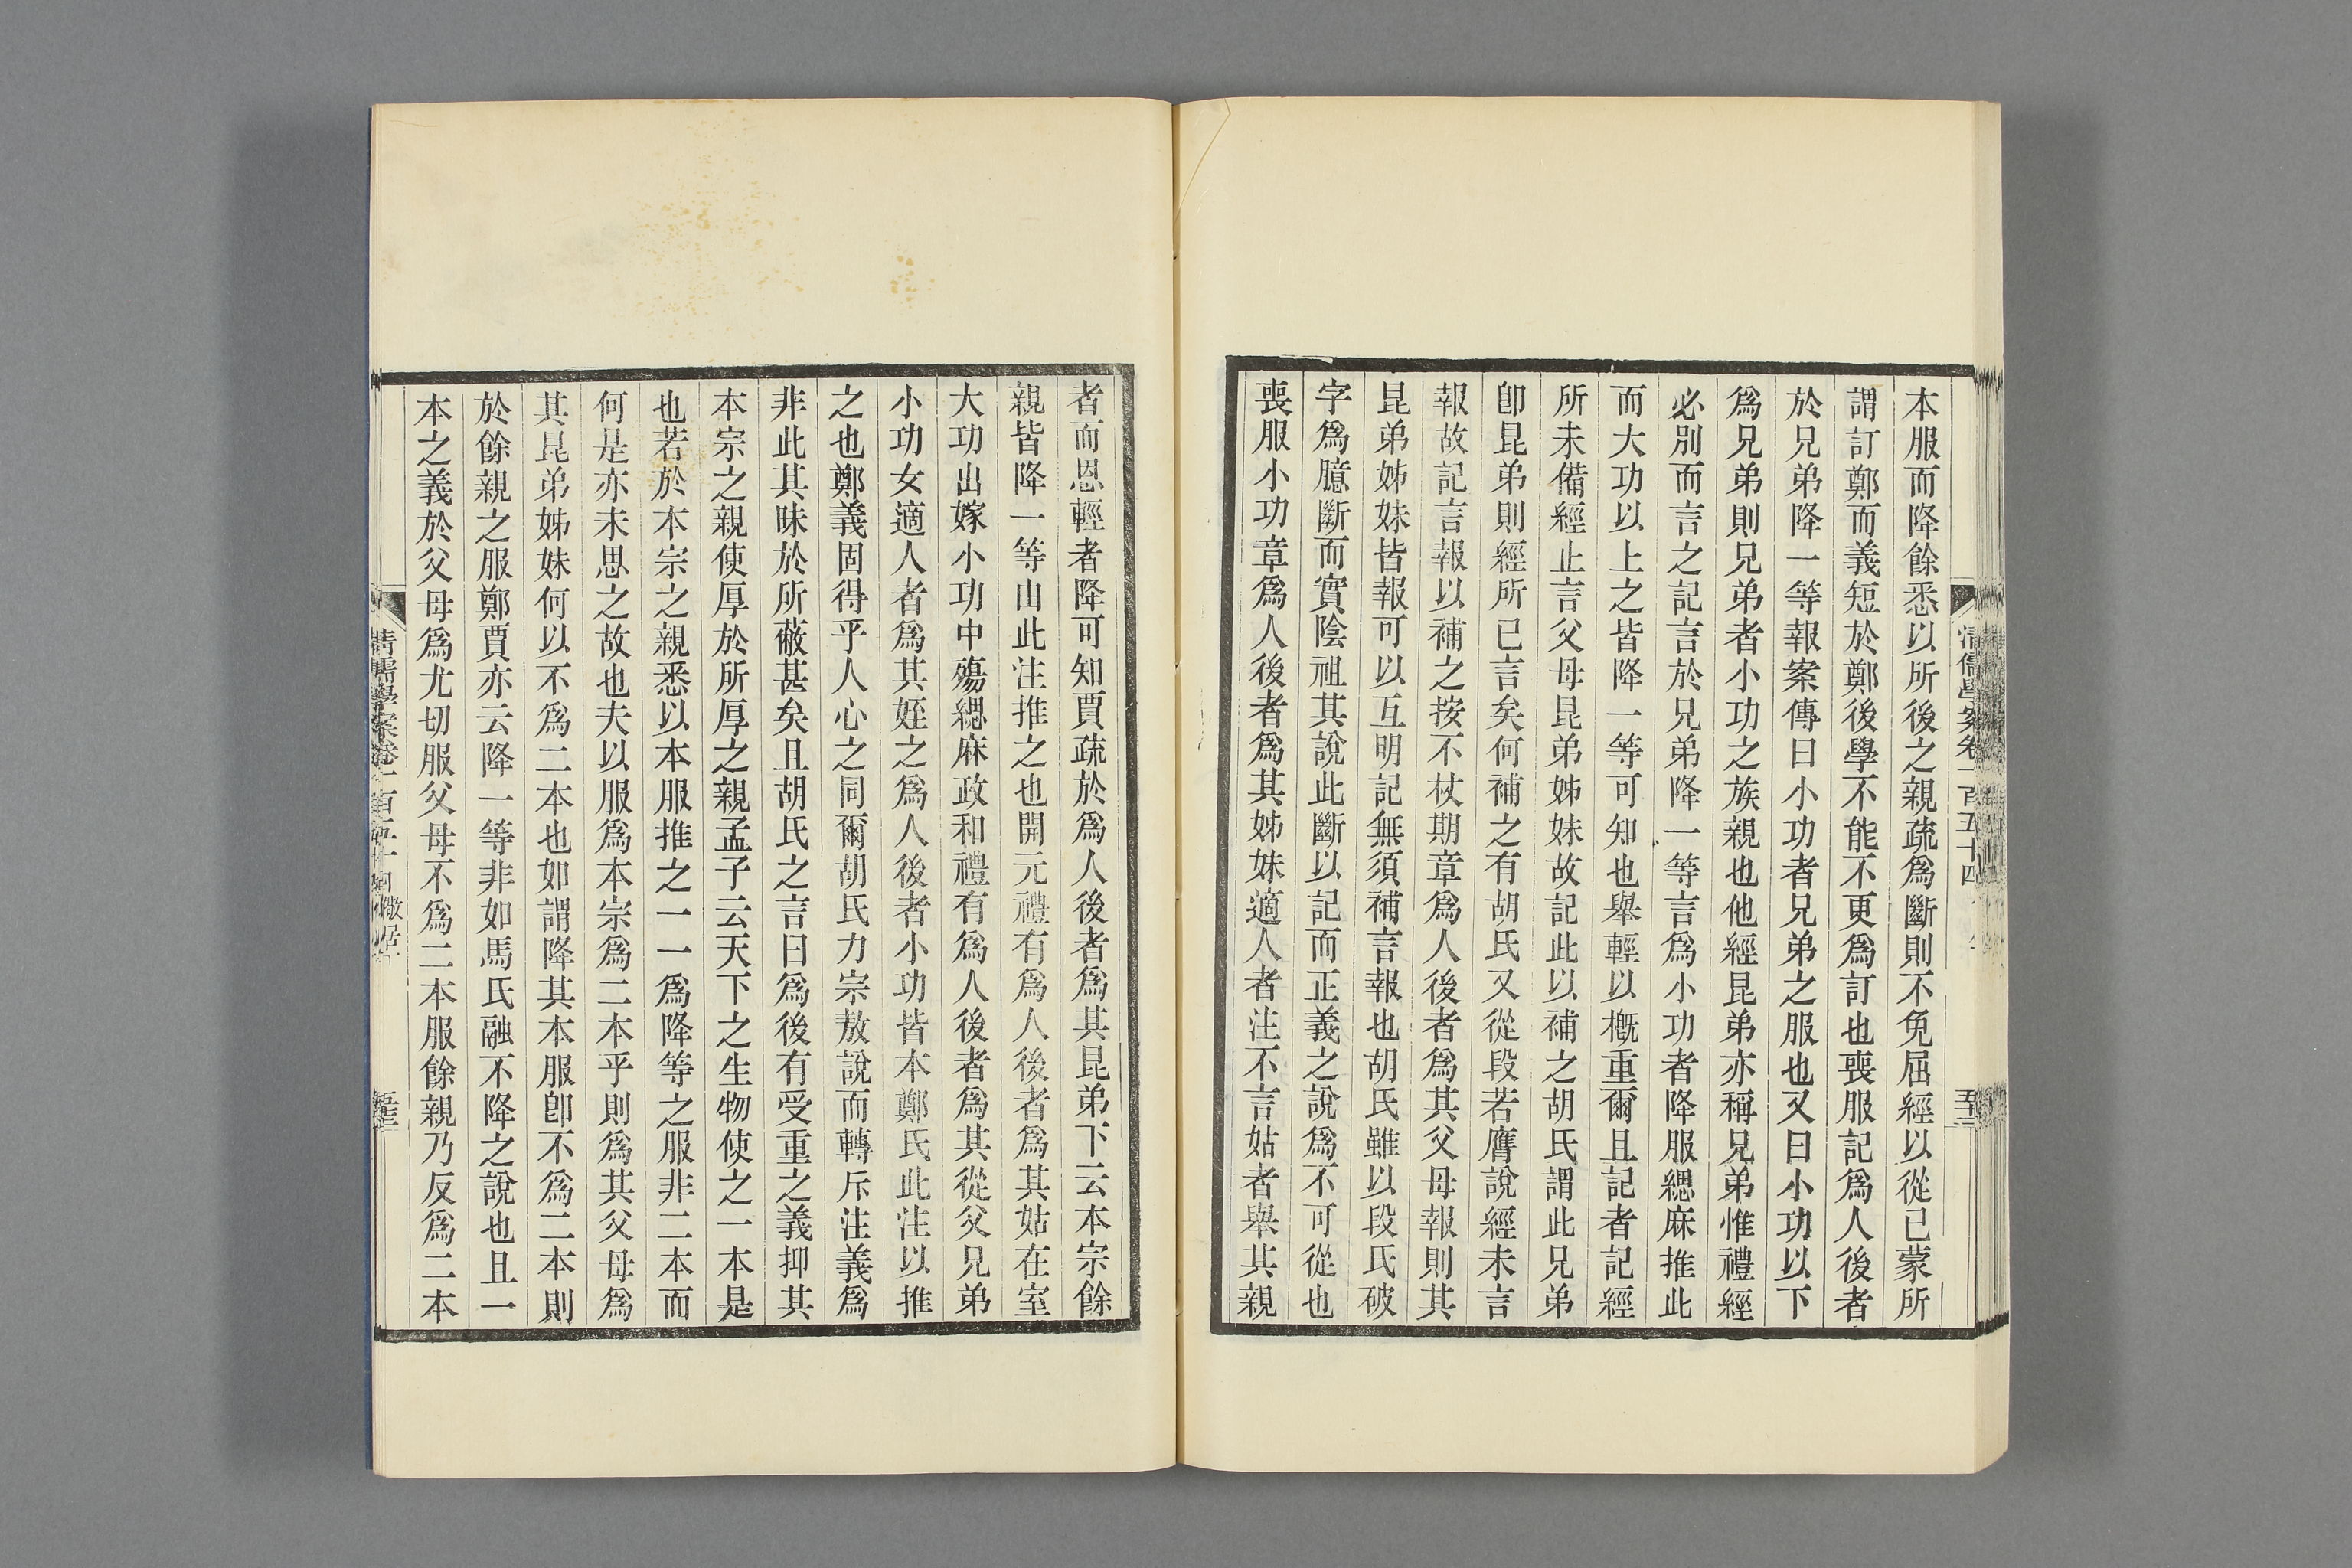 本服而降餘悉以所後之親疏爲斷則不免屈經以從已蒙所
謂訂鄭而義短於鄭後學不能不更爲訂也喪服記爲人後者
於兄弟降一等報案傳曰小功者兄弟之服也又曰小功以下
爲兄弟則兄弟者小功之族親也他經昆弟亦稱兄弟惟禮經
必別而言之記言於兄弟降一等言爲小功者降服緦麻推此
而大功以上之皆降一等可知也舉輕以概重爾且記者記經
所未備經止言父母昆弟姊妹故記此以補之胡氏謂此兄弟
卽昆弟則經所已言矣何補之有胡氏又從段若膺說經未言
報故記言報以補之按不杖期章爲人後者爲其父母報則其
昆弟姊妹皆報可以互明記無須補言報也胡氏雖以段氏破
字爲臆斷而實陰祖其說此斷以記而正義之說爲不可從也
喪服小功章爲人後者爲其姊妹適人者注不言姑者舉其親
清儒學案卷一百五十四
者而恩輕者降可知賈疏於爲人後者爲其昆弟下云本宗餘
親皆降一等由此注推之也開元禮有爲人後者爲其姑在室
大功出嫁小功中殤緦麻政和禮有爲人後者爲其從父兄弟
小功女適人者爲其姪之爲人後者小功皆本鄭氏此注以推
之也鄭義固得乎人心之同爾胡氏力宗敖說而轉斥注義爲
非此其昧於所蔽甚矣且胡氏之言曰爲後有受重之義抑其
本宗之親使厚於所厚之親孟子云天下之生物使之一本是
也若於本宗之親悉以本服推之一一爲降等之服非二本而
何是亦未思之故也夫以服爲本宗爲二本乎則爲其父母爲
其昆弟姊妹何以不爲二本也如謂降其本服卽不爲二本則
於餘親之服鄭賈亦云降一等非如馬氏融不降之說也且一
本之義於父母爲尤切服父母不爲二本服餘親乃反爲二本
清儒學案卷一百五十四